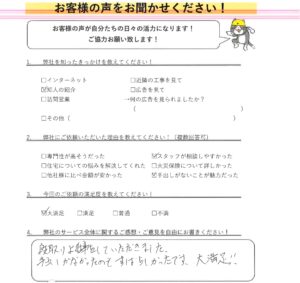 お客様の声をお聞かせください！
お客様の声が自分たちの日々の活力になります！
ご協力お願い致します！
1. 弊社を知ったきっかけを教えてください！
□インターネット □近隣の工事を見て
☑知人の紹介 □広告を見て
□訪問営業 →何の広告を見られましたか？
( )
□その他（ ）
2. 弊社にご依頼いただいた理由を教えてください！（複数回答可）
□専門性が高そうだった ☑スタッフが相談しやすかった
□住宅についての悩みを解決してくれた □火災保険について詳しかった
□他社様に比べ金額が安かった ☑手出しがないことが魅力だった
3. 今回のご依頼の満足度を教えてください！
☑大満足 □満足 □普通 □不満
4. 弊社のサービス全体に関するご感想・ご意見を自由にお書きください！
していただきました。
手出しがなかったのですばらしかったです。大満足!!